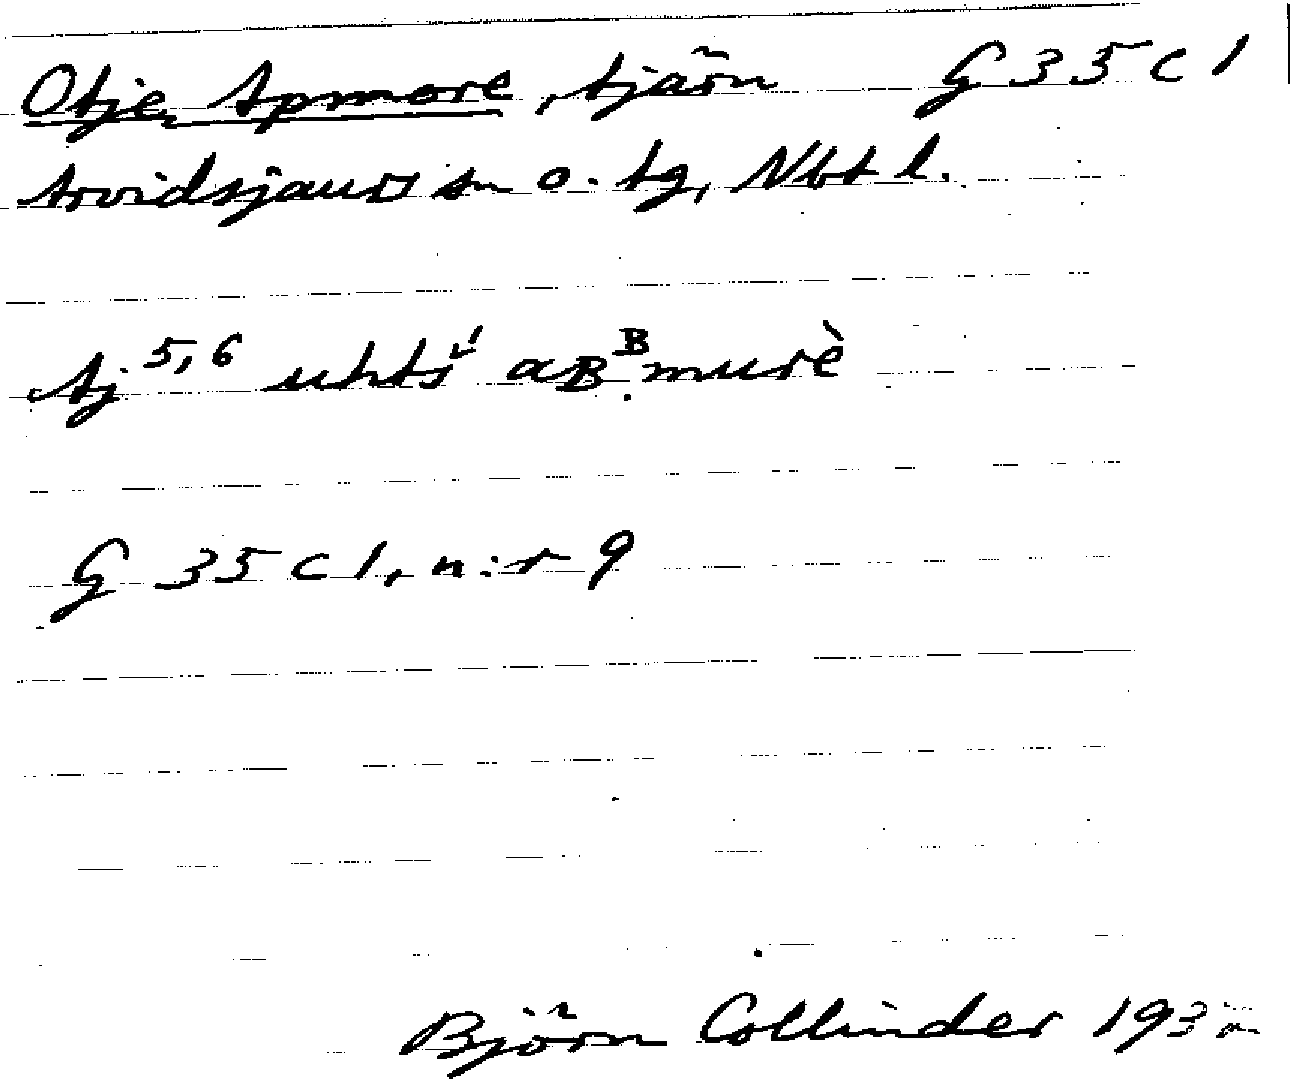 Otje Apmore, tjärn G 35 c 1
Arvidsjaurs sn o. tg, Nbt l.
Aj 5,6 uhtsˈ aBᴮmurè
G 35 c 1, n:r 9
Björn Collinder